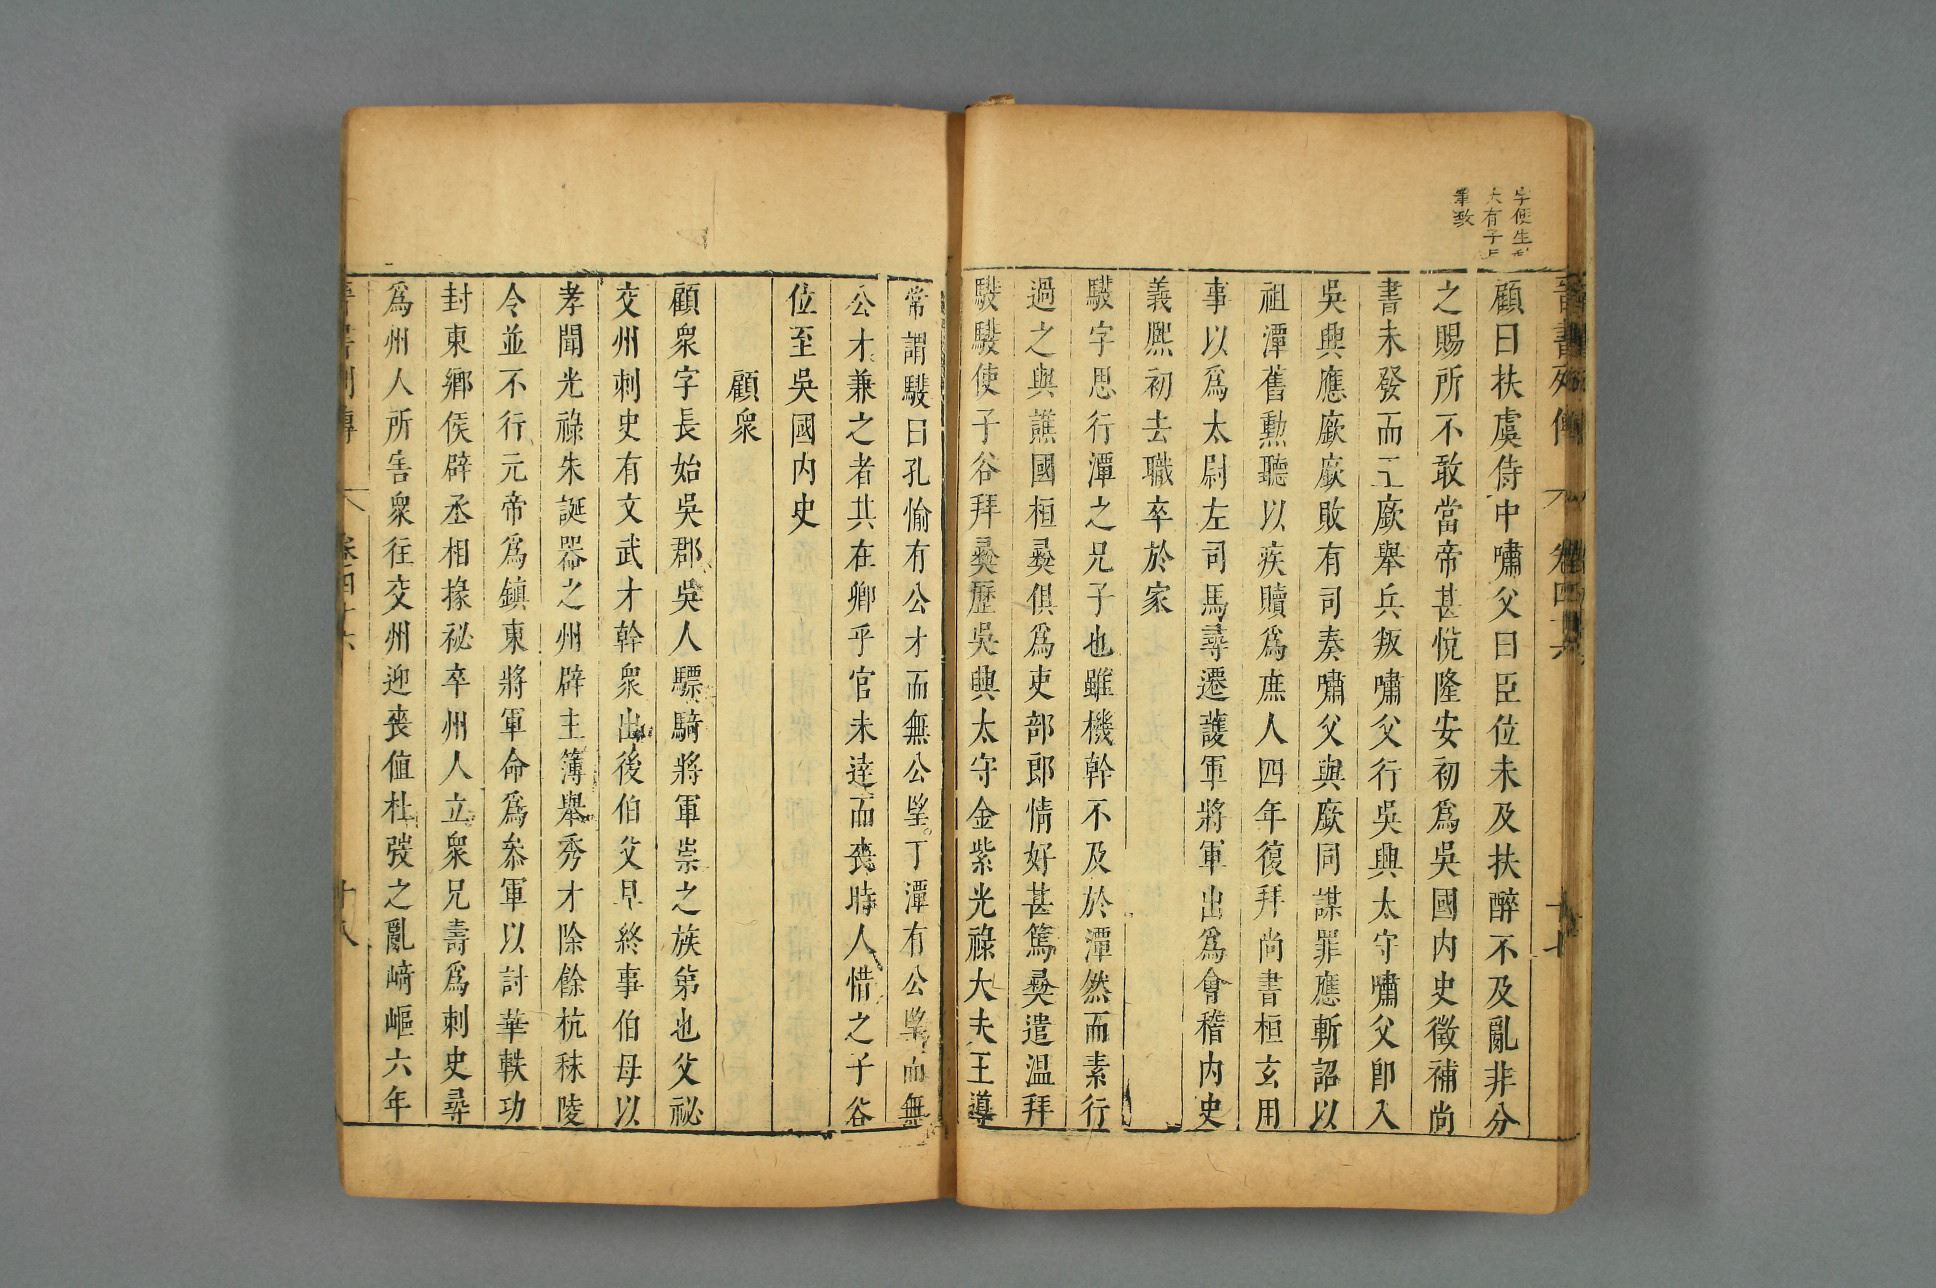 字使生
大有子
筆致
晉書列傳 卷四十六 十七
顧曰扶虞侍中嘯父曰臣位未及扶醉不及亂非分
之賜所不敢當帝甚悅隆安初爲吳國内史徵補尚
書未發而王廞舉兵叛嘯父行吳興太守嘯父卽入
吳興應廞廞敗有司奏嘯父與廞同謀罪應斬詔以
祖潭舊勳聽以疾贖爲庶人四年復拜尚書桓玄用
事以爲太尉左司馬尋遷護軍將軍出爲會稽内史
義熙初去職卒於家
駿字思行潭之兄子也雖機幹不及於潭然而素行
過之與譙國桓彝俱爲吏部郎情好甚篤彝遣温拜
駿駿使子谷拜彝歷吳興太守金紫光祿大夫王導
常謂駿曰孔愉有公才而無公望丁潭有公望而無
公才兼之者其在卿乎官未達而喪時人惜之子谷
位至吳國内史
顧衆
顧衆字長始吳郡吳人驃騎將軍崇之族弟也父祕
交州刺史有文武才幹衆出後伯父早終事伯母以
孝聞光祿朱誕器之州辟主簿舉秀才除餘杭秣陵
令並不行元帝爲鎮東將軍命爲叅軍以討華軼功
封東鄉侯辟丞相掾祕卒州人立衆兄壽爲刺史尋
爲州人所害衆往交州迎喪值杜弢之亂崎嶇六年
晉書列傳 卷四十六 十八